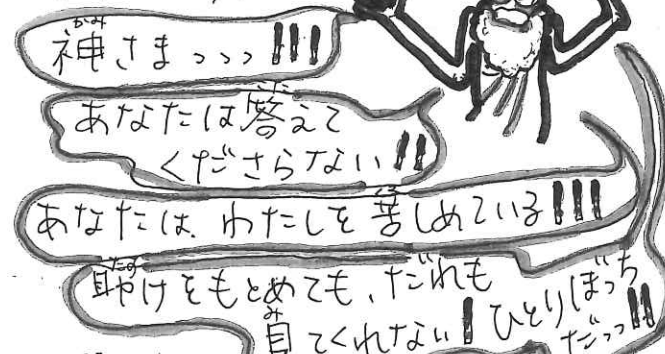 神さまっっっ!!!
あなたは答えて
くださらない!!
あなたは、わたしを苦しめている!!!
助けをもとめても、だれも
見てくれない! ひとりぼっち
だっっ!!